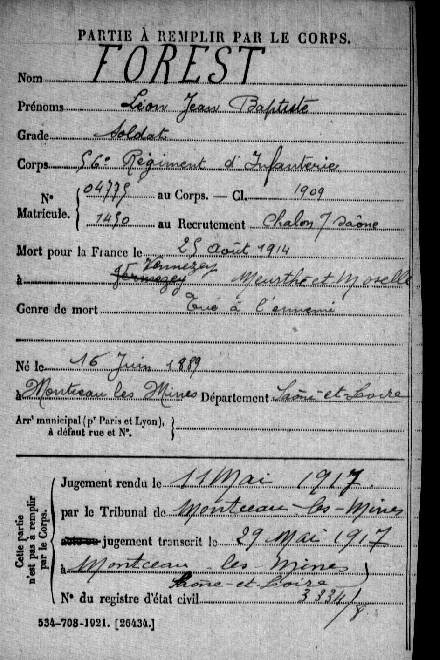 PARTIE À REMPLIR PAR LE CORPS.
Nom FOREST
Prénoms Léon Jean Baptiste
Grade Soldat
Corps 56e Régiment d'Infanterie
N° Matricule. { 04775 au Corps. — Cl. 1909
1450 au Recrutement Chalon s/ Saône
Mort pour la France le 25 août 1914
à Vennezey Meurthe et Moselle
Genre de mort Tué à l'ennemi
Né le 16 Juin 1889
à Montceau les Mines Département Saône-et-Loire
Arrt municipal (pr Paris et Lyon), à défaut rue et N°.
Cette partie n'est pas à remplir par le Corps.
Jugement rendu le 11 Mai 1917
par le Tribunal de Montceau-les-Mines
jugement transcrit le 29 Mai 1917
à Montceau les Mines
Saône-et-Loire
N° du registre d'état civil
534-708-1921. [26434.]